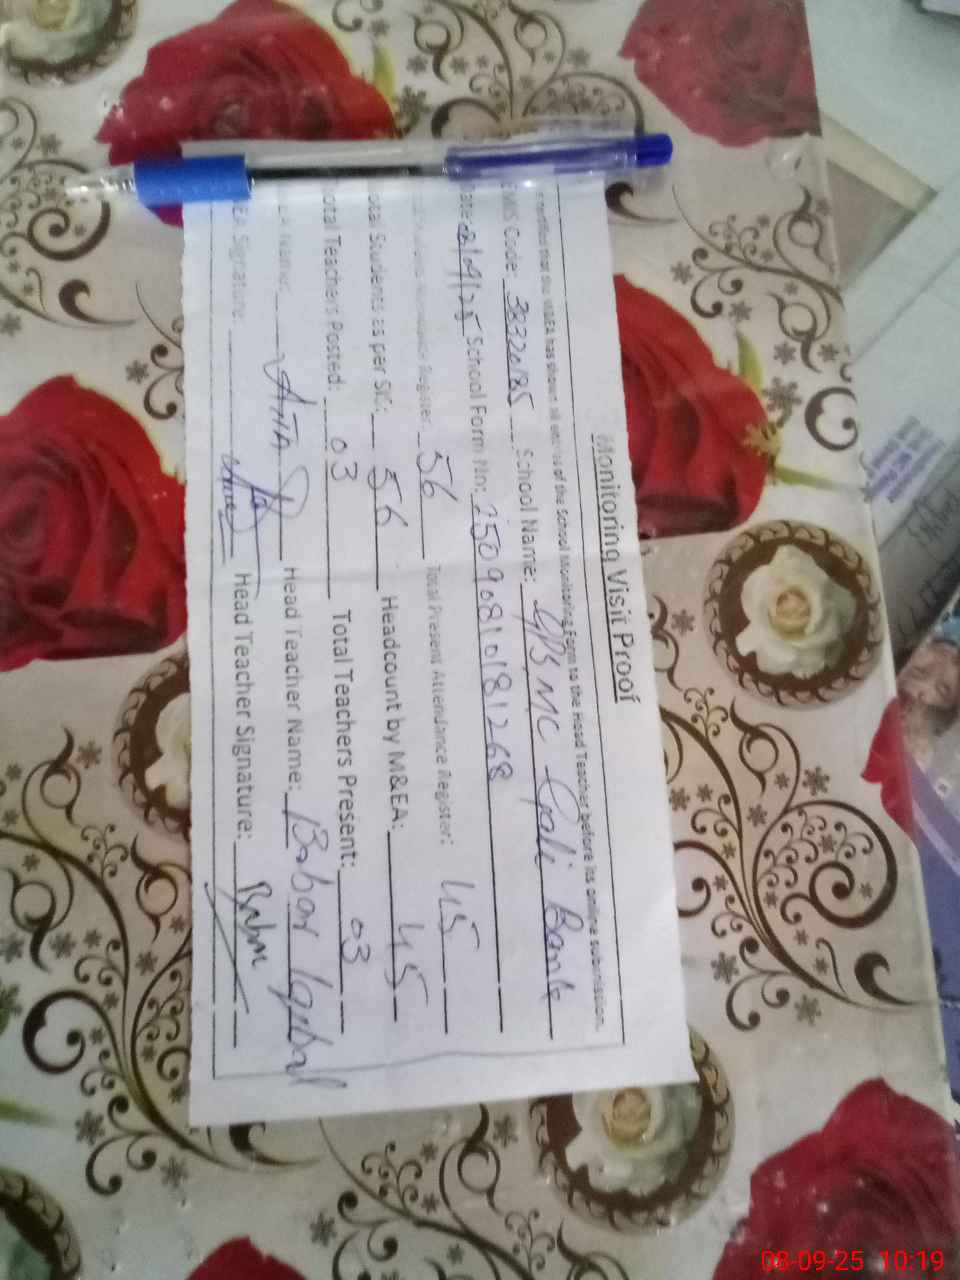 Monitoring Visit Proof
Certified that the M&EA has shown all entries of the School Monitoring Form to the Head Teacher before its online submission.
EMIS Code: 38320185 School Name: GPS MC Goli Banth
Date 08/09/25 School Form No: 25090810181268
Register 56 Total Present Attendance Register: 45
Total Students as per SIC: 56 Headcount by M&EA: 45
Total Teachers Posted: 03 Total Teachers Present: 03
Name: Head Teacher Name: Babar Iqbal
EA Signature: Head Teacher Signature: Babar
08-09-25 10:19